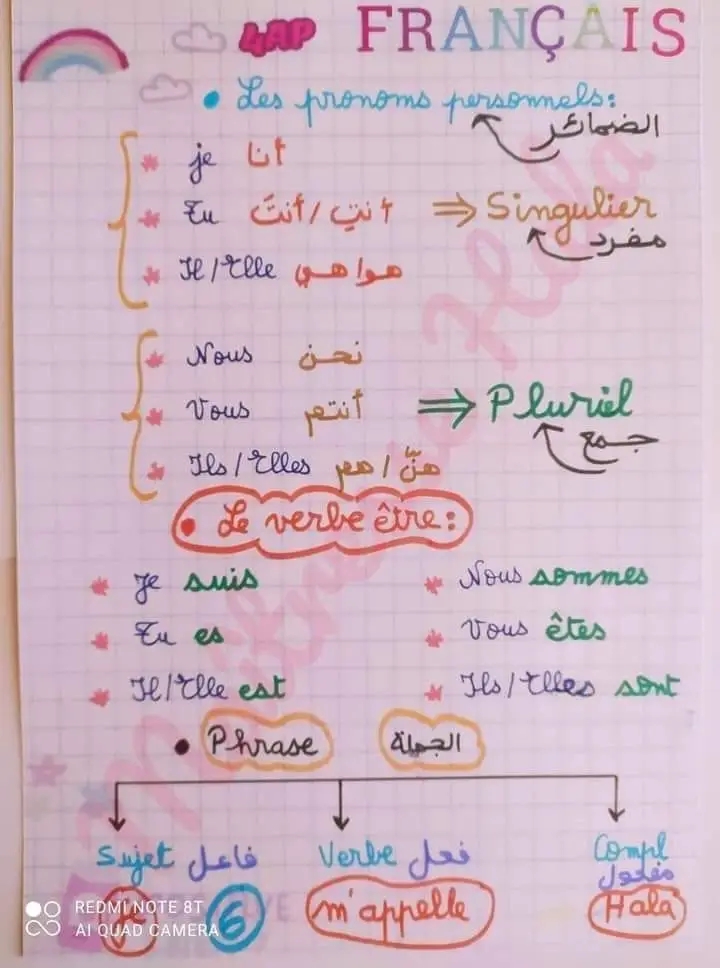 4AP FRANÇAIS
• Les pronoms personnels:
الضمائر
* je أنا
* Tu أنتِ / أنتَ ⇒ Singulier
مفرد
* Il/Elle هو اهي
* Nous نحن
* Vous أنتم ⇒ Pluriel
جمع
* Ils/Elles هم / هنّ
• Le verbe être:
* Je suis * Nous sommes
* Tu es * Vous êtes
* Il/Elle est * Ils/Elles sont
• Phrase الجملة
Sujet فاعل Verbe فعل Compl
مفعول
Je 6 m'appelle Hala
REDMI NOTE 8T
AI QUAD CAMERA